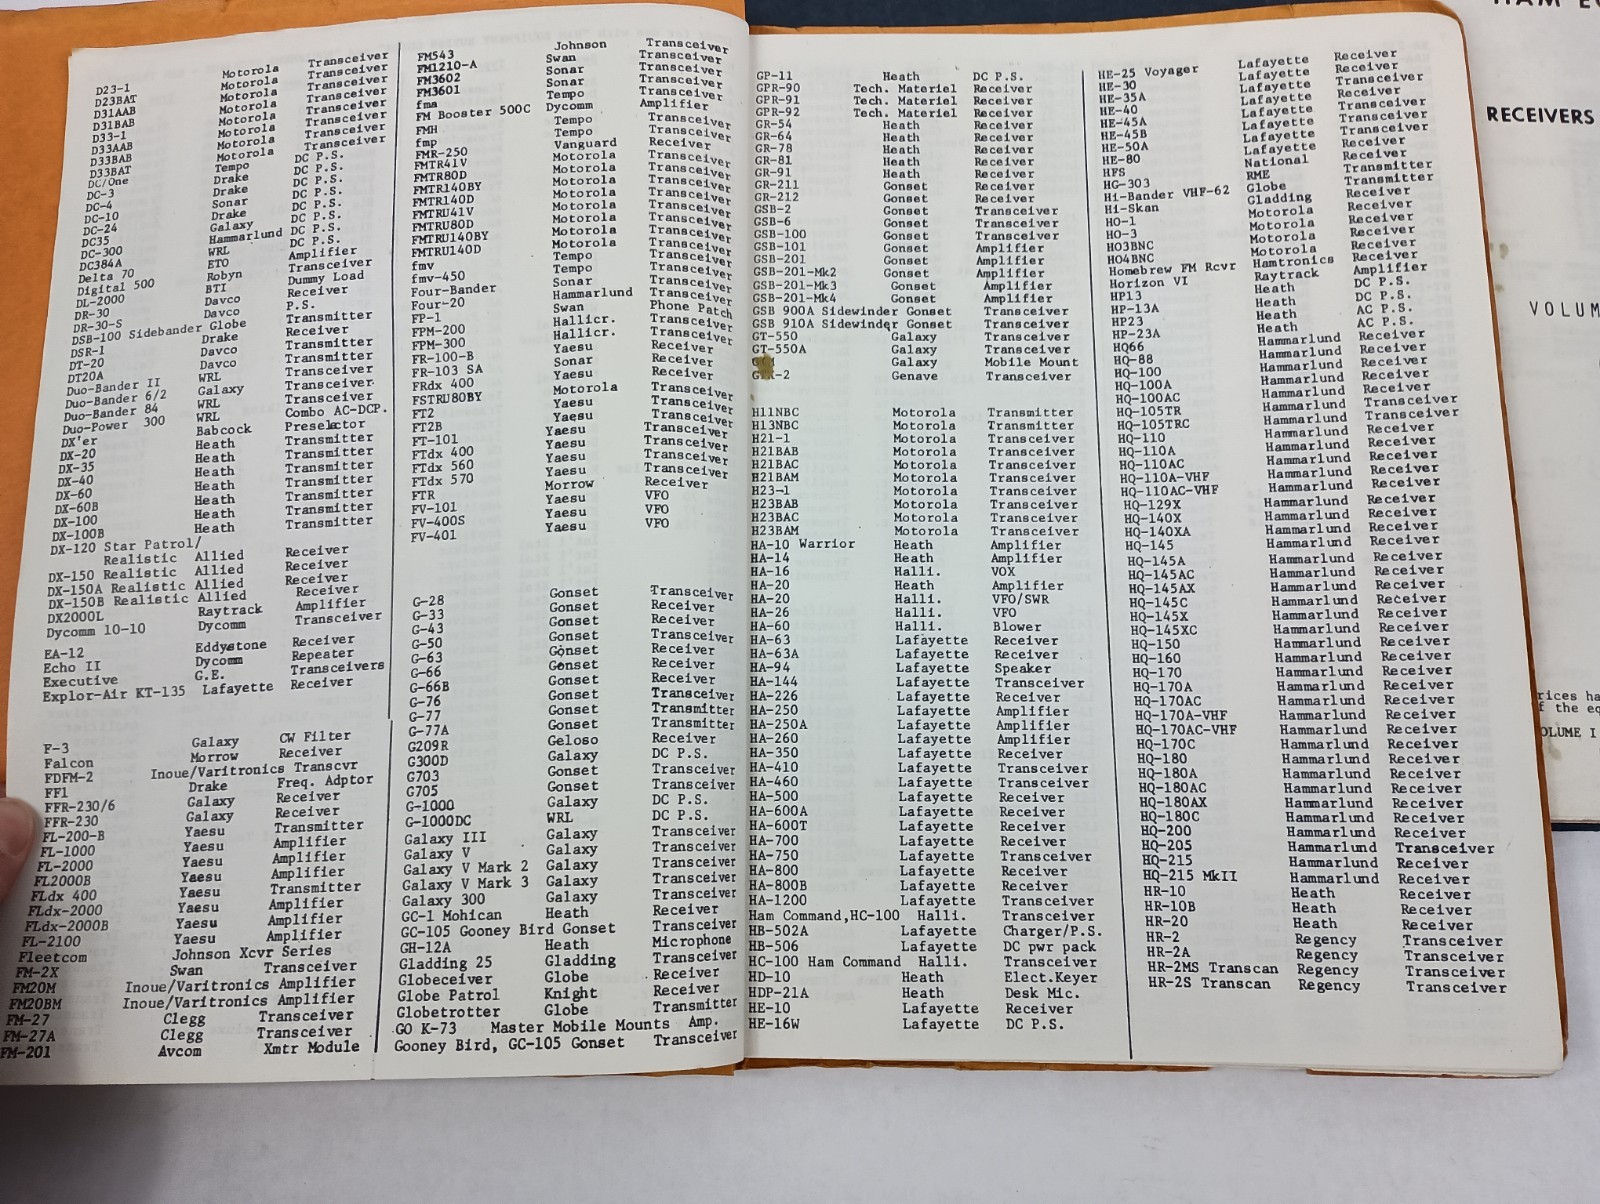 D23-1 Motorola Transceiver
D23BAT Motorola Transceiver
D31AAB Motorola Transceiver
D31BAB Motorola Transceiver
D33-1 Motorola Transceiver
D33AAB Motorola Transceiver
D33BAB Motorola Transceiver
D33BAT Motorola Transceiver
DC/One Tempo DC P.S.
DC-3 Drake DC P.S.
DC-4 Drake DC P.S.
DC-10 Sonar DC P.S.
DC-24 Drake DC P.S.
DC35 Galaxy DC P.S.
DC-300 Hammarlund DC P.S.
DC384A WRL DC P.S.
Delta 70 ETO Amplifier
Digital 500 Robyn Transceiver
DL-2000 BTI Dummy Load
DR-30 Davco Receiver
DR-30-S Davco P.S.
DSB-100 Sidebander Globe Transmitter
DSR-1 Drake Receiver
DT-20 Davco Transmitter
DT20A Davco Transmitter
Duo-Bander II WRL Transceiver
Duo-Bander 6/2 Galaxy Transceiver
Duo-Bander 84 WRL Transceiver
Duo-Power 300 WRL Combo AC-DCP.
DX'er Babcock Preselector
DX-20 Heath Transmitter
DX-35 Heath Transmitter
DX-40 Heath Transmitter
DX-60 Heath Transmitter
DX-60B Heath Transmitter
DX-100 Heath Transmitter
DX-100B Heath Transmitter
DX-120 Star Patrol/
Realistic Allied Receiver
DX-150 Realistic Allied Receiver
DX-150A Realistic Allied Receiver
DX-150B Realistic Allied Receiver
DX2000L Raytrack Amplifier
Dycomm 10-10 Dycomm Transceiver
EA-12 Eddystone Receiver
Echo II Dycomm Repeater
Executive G.E. Transceivers
Explor-Air KT-135 Lafayette Receiver
F-3 Galaxy CW Filter
Falcon Morrow Receiver
FDFM-2 Inoue/Varitronics Transcvr
FF1 Drake Freq. Adptor
FFR-230/6 Galaxy Receiver
FFR-230 Galaxy Receiver
FL-200-B Yaesu Transmitter
FL-1000 Yaesu Amplifier
FL-2000 Yaesu Amplifier
FL2000B Yaesu Amplifier
FLdx 400 Yaesu Transmitter
FLdx-2000 Yaesu Amplifier
FLdx-2000B Yaesu Amplifier
FL-2100 Yaesu Amplifier
Fleetcom Johnson Xcvr Series
FM-2X Swan Transceiver
FM20M Inoue/Varitronics Amplifier
FM20BM Inoue/Varitronics Amplifier
FM-27 Clegg Transceiver
FM-27A Clegg Transceiver
FM-201 Avcom Xmtr Module
FM543 Johnson Transceiver
FM1210-A Swan Transceiver
FM3602 Sonar Transceiver
FM3601 Sonar Transceiver
fma Tempo Transceiver
FM Booster 500C Dycomm Amplifier
FMH Tempo Transceiver
fmp Tempo Transceiver
FMR-250 Vanguard Receiver
FMTR41V Motorola Transceiver
FMTR80D Motorola Transceiver
FMTR140BY Motorola Transceiver
FMTR140D Motorola Transceiver
FMTRU41V Motorola Transceiver
FMTRU80D Motorola Transceiver
FMTRU140BY Motorola Transceiver
FMTRU140D Motorola Transceiver
fmv Tempo Transceiver
fmv-450 Tempo Transceiver
Four-Bander Sonar Transceiver
Four-20 Hammarlund Transceiver
FP-1 Swan Phone Patch
FPM-200 Hallicr. Transceiver
FPM-300 Hallicr. Transceiver
FR-100-B Yaesu Receiver
FR-103 SA Sonar Receiver
FRdx 400 Yaesu Receiver
FSTRU80BY Motorola Transceiver
FT2 Yaesu Transceiver
FT2B Yaesu Transceiver
FT-101 Yaesu Transceiver
FTdx 400 Yaesu Transceiver
FTdx 560 Yaesu Transceiver
FTdx 570 Yaesu Transceiver
FTR Morrow Receiver
FV-101 Yaesu VFO
FV-400S Yaesu VFO
FV-401 Yaesu VFO
G-28 Gonset Transceiver
G-33 Gonset Receiver
G-43 Gonset Receiver
G-50 Gonset Transceiver
G-63 Gonset Receiver
G-66 Gonset Receiver
G-66B Gonset Receiver
G-76 Gonset Transceiver
G-77 Gonset Transmitter
G-77A Gonset Transmitter
G209R Geloso Receiver
G300D Galaxy DC P.S.
G703 Gonset Transceiver
G705 Gonset Transceiver
G-1000 Galaxy DC P.S.
G-1000DC WRL DC P.S.
Galaxy III Galaxy Transceiver
Galaxy V Galaxy Transceiver
Galaxy V Mark 2 Galaxy Transceiver
Galaxy V Mark 3 Galaxy Transceiver
Galaxy 300 Galaxy Transceiver
GC-1 Mohican Heath Receiver
GC-105 Gooney Bird Gonset Transceiver
GH-12A Heath Microphone
Gladding 25 Gladding Transceiver
Globeceiver Globe Receiver
Globe Patrol Knight Receiver
Globetrotter Globe Transmitter
GO K-73 Master Mobile Mounts Amp.
Gooney Bird, GC-105 Gonset Transceiver
GP-11 Heath DC P.S.
GPR-90 Tech. Materiel Receiver
GPR-91 Tech. Materiel Receiver
GPR-92 Tech. Materiel Receiver
GR-54 Heath Receiver
GR-64 Heath Receiver
GR-78 Heath Receiver
GR-81 Heath Receiver
GR-91 Heath Receiver
GR-211 Gonset Receiver
GR-212 Gonset Receiver
GSB-2 Gonset Transceiver
GSB-6 Gonset Transceiver
GSB-100 Gonset Transceiver
GSB-101 Gonset Amplifier
GSB-201 Gonset Amplifier
GSB-201-Mk2 Gonset Amplifier
GSB-201-Mk3 Gonset Amplifier
GSB-201-Mk4 Gonset Amplifier
GSB 900A Sidewinder Gonset Transceiver
GSB 910A Sidewinder Gonset Transceiver
GT-550 Galaxy Transceiver
GT-550A Galaxy Transceiver
Galaxy Mobile Mount
Genave Transceiver
H11NBC Motorola Transmitter
H13NBC Motorola Transmitter
H21-1 Motorola Transceiver
H21BAB Motorola Transceiver
H21BAC Motorola Transceiver
H21BAM Motorola Transceiver
H23-1 Motorola Transceiver
H23BAB Motorola Transceiver
H23BAC Motorola Transceiver
H23BAM Motorola Transceiver
HA-10 Warrior Heath Amplifier
HA-14 Heath Amplifier
HA-16 Halli. VOX
HA-20 Heath Amplifier
HA-20 Halli. VFO/SWR
HA-26 Halli. VFO
HA-60 Halli. Blower
HA-63 Lafayette Receiver
HA-63A Lafayette Receiver
HA-94 Lafayette Speaker
HA-144 Lafayette Transceiver
HA-226 Lafayette Receiver
HA-250 Lafayette Amplifier
HA-250A Lafayette Amplifier
HA-260 Lafayette Amplifier
HA-350 Lafayette Receiver
HA-410 Lafayette Transceiver
HA-460 Lafayette Transceiver
HA-500 Lafayette Receiver
HA-600A Lafayette Receiver
HA-600T Lafayette Receiver
HA-700 Lafayette Receiver
HA-750 Lafayette Transceiver
HA-800 Lafayette Receiver
HA-800B Lafayette Receiver
HA-1200 Lafayette Transceiver
Ham Command,HC-100 Halli. Transceiver
HB-502A Lafayette Charger/P.S.
HB-506 Lafayette DC pwr pack
HC-100 Ham Command Halli. Transceiver
HD-10 Heath Elect.Keyer
HDP-21A Heath Desk Mic.
HE-10 Lafayette Receiver
HE-16W Lafayette DC P.S.
HE-25 Voyager Lafayette Receiver
HE-30 Lafayette Receiver
HE-35A Lafayette Transceiver
HE-40 Lafayette Receiver
HE-45A Lafayette Transceiver
HE-45B Lafayette Transceiver
HE-50A Lafayette Transceiver
HE-80 Lafayette Receiver
HFS National Receiver
HG-303 RME Transmitter
Hi-Bander VHF-62 Globe Transmitter
Hi-Skan Gladding Receiver
HO-1 Motorola Receiver
HO-3 Motorola Receiver
HO3BNC Motorola Receiver
HO4BNC Motorola Receiver
Homebrew FM Rcvr Hamtronics Receiver
Horizon VI Raytrack Amplifier
HP13 Heath DC P.S.
HP-13A Heath DC P.S.
HP23 Heath AC P.S.
HP-23A Heath AC P.S.
HQ66 Hammarlund Receiver
HQ-88 Hammarlund Receiver
HQ-100 Hammarlund Receiver
HQ-100A Hammarlund Receiver
HQ-100AC Hammarlund Receiver
HQ-105TR Hammarlund Transceiver
HQ-105TRC Hammarlund Transceiver
HQ-110 Hammarlund Receiver
HQ-110A Hammarlund Receiver
HQ-110AC Hammarlund Receiver
HQ-110A-VHF Hammarlund Receiver
HQ-110AC-VHF Hammarlund Receiver
HQ-129X Hammarlund Receiver
HQ-140X Hammarlund Receiver
HQ-140XA Hammarlund Receiver
HQ-145 Hammarlund Receiver
HQ-145A Hammarlund Receiver
HQ-145AC Hammarlund Receiver
HQ-145AX Hammarlund Receiver
HQ-145C Hammarlund Receiver
HQ-145X Hammarlund Receiver
HQ-145XC Hammarlund Receiver
HQ-150 Hammarlund Receiver
HQ-160 Hammarlund Receiver
HQ-170 Hammarlund Receiver
HQ-170A Hammarlund Receiver
HQ-170AC Hammarlund Receiver
HQ-170A-VHF Hammarlund Receiver
HQ-170AC-VHF Hammarlund Receiver
HQ-170C Hammarlund Receiver
HQ-180 Hammarlund Receiver
HQ-180A Hammarlund Receiver
HQ-180AC Hammarlund Receiver
HQ-180AX Hammarlund Receiver
HQ-180C Hammarlund Receiver
HQ-200 Hammarlund Receiver
HQ-205 Hammarlund Transceiver
HQ-215 Hammarlund Receiver
HQ-215 MkII Hammarlund Receiver
HR-10 Heath Receiver
HR-10B Heath Receiver
HR-20 Heath Receiver
HR-2 Regency Transceiver
HR-2A Regency Transceiver
HR-2MS Transcan Regency Transceiver
HR-2S Transcan Regency Transceiver
RECEIVERS
VOLUM
OLUME I